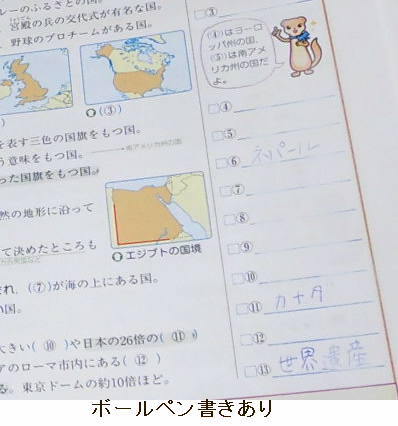 ルーのふるさとの国。
宮殿の兵の交代式が有名な国。
野球のプロチームがある国。
(③)
を表す三色の国旗をもつ国。
う意味をもつ国。
南アメリカ州の国
った国旗をもつ国。
然の地形に沿って
て決めたところも
エジプトの国境
まれ,(⑦)が海の上にある国。
い国。
大きい(⑩)や日本の26倍の(⑪)
アのローマ市内にある(⑫)
る。東京ドームの約10倍ほど。
□③
(④)はヨーロ
ッパ州の国,
(⑤)は南アメ
リカ州の国だ
よ。
□④
□⑤
□⑥ ネパール
□⑦
□⑧
□⑨
□⑩
□⑪ カナダ
□⑫
□⑬ 世界遺産
ボールペン書きあり